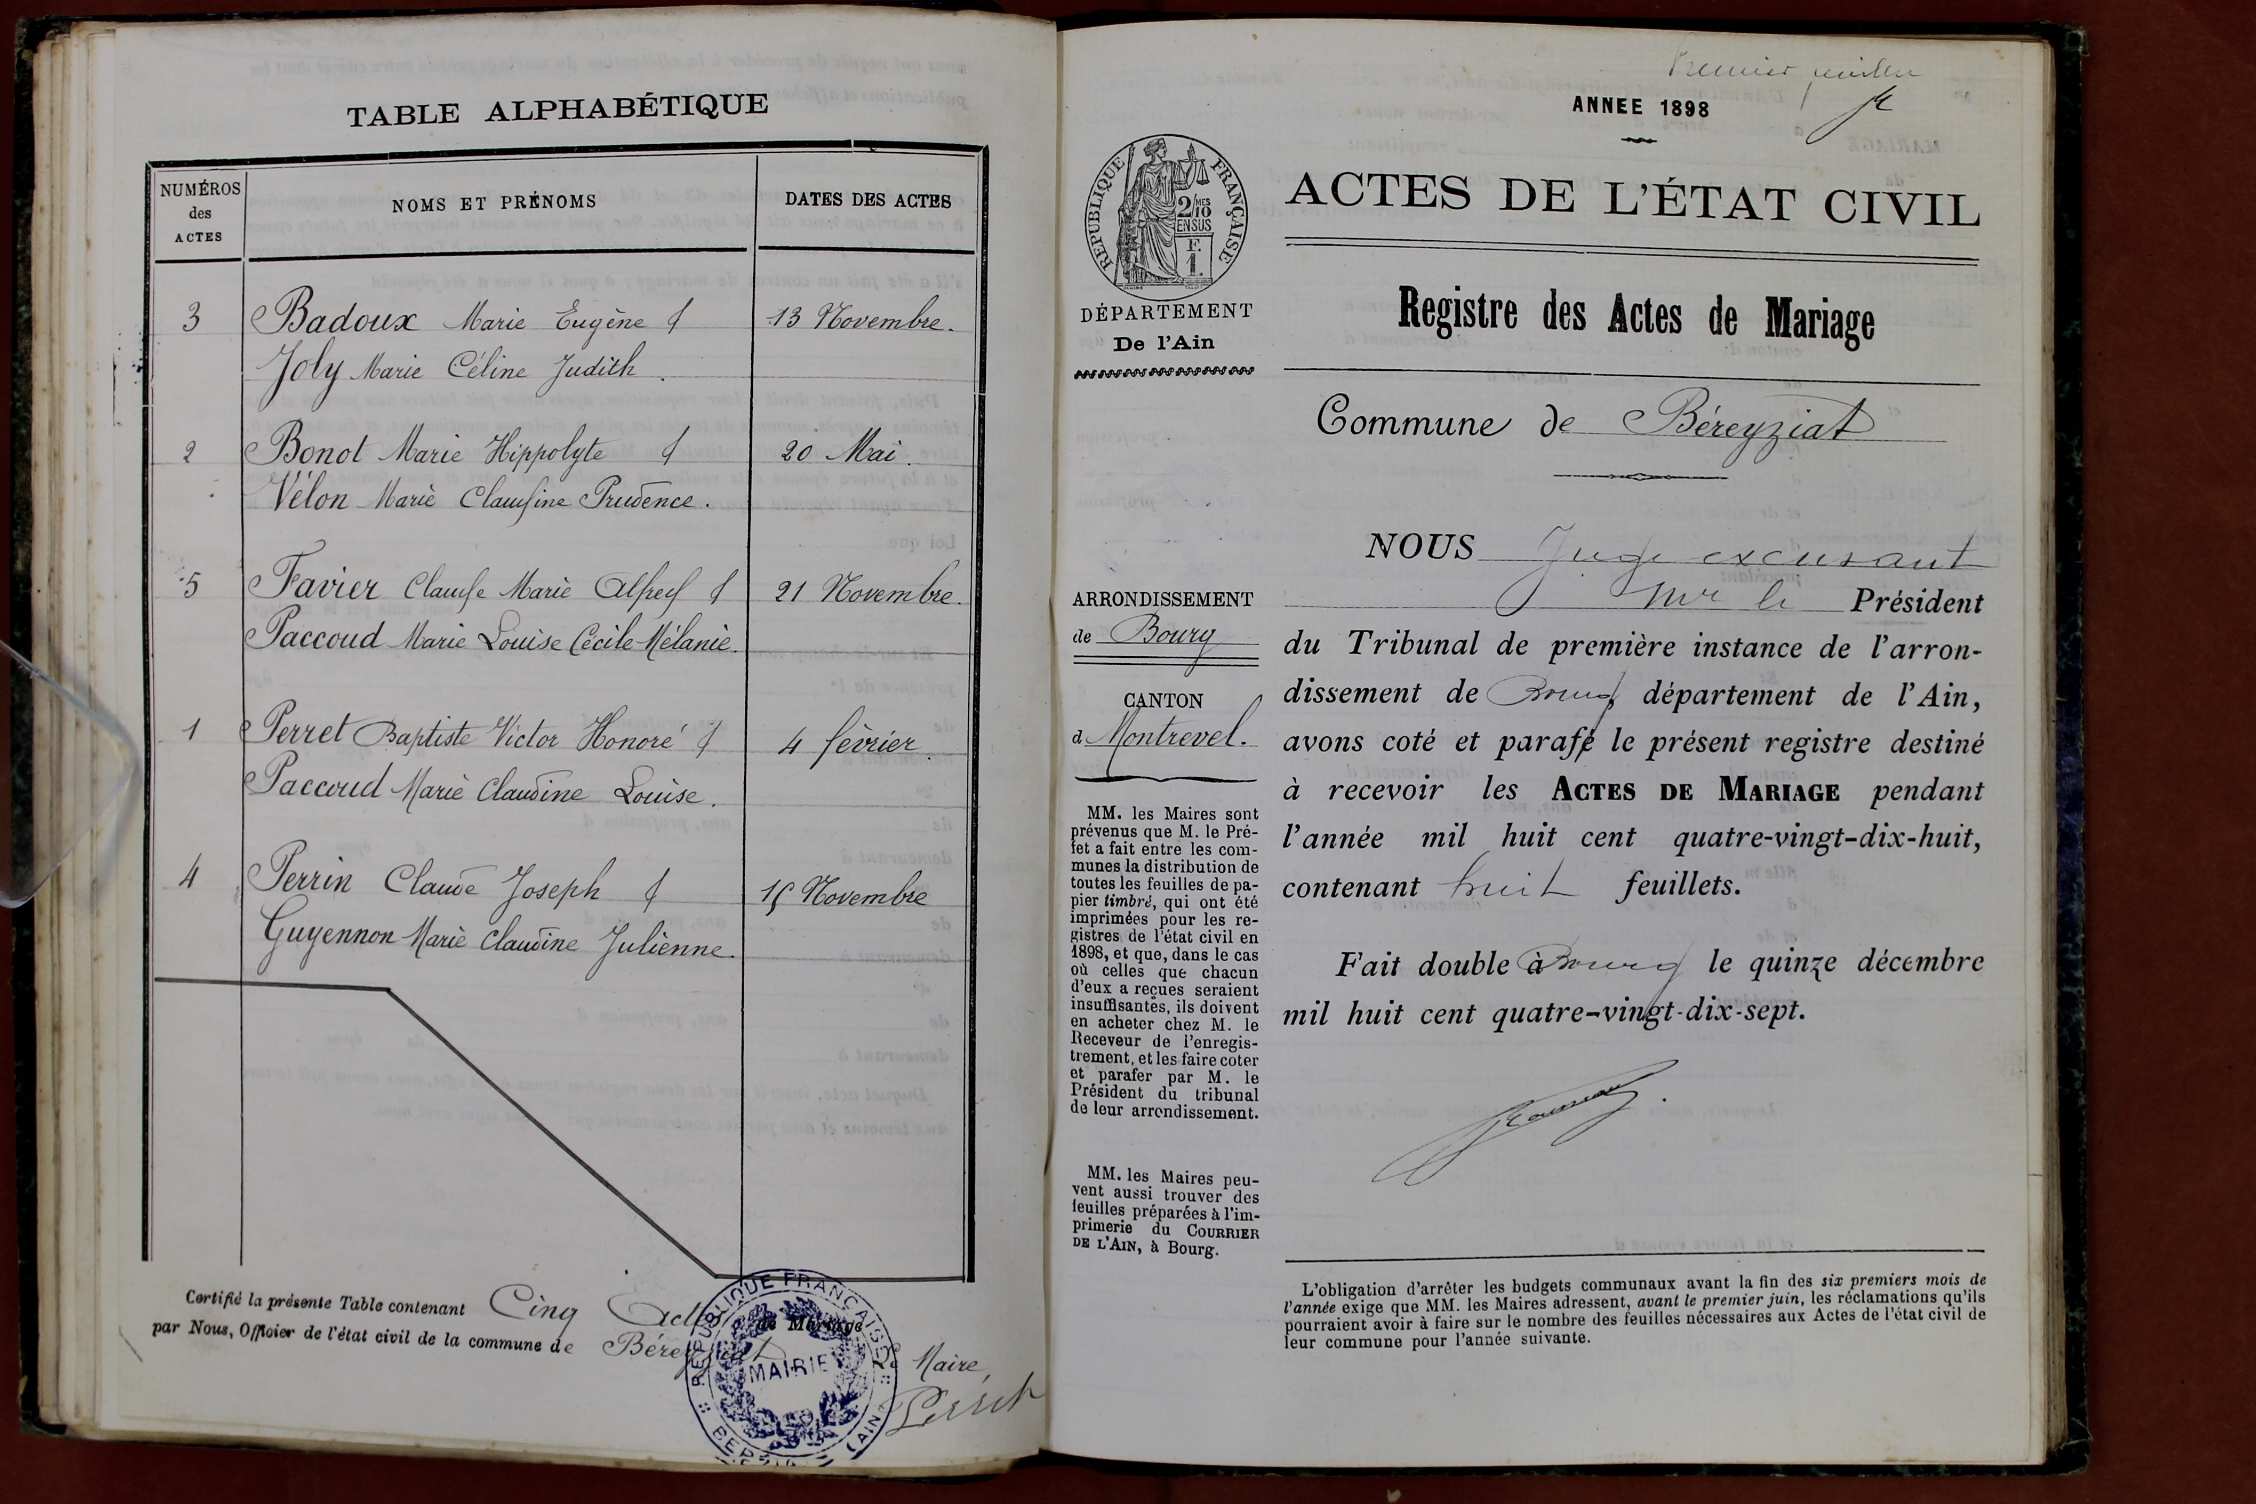 TABLE ALPHABÉTIQUE
NUMÉROS
des
ACTES
NOMS ET PRÉNOMS
DATES DES ACTES
3 Badoux Marie Eugène & 13 Novembre.
Joly Marie Céline Judith.
2 Bonot Marie Hippolyte & 20 Mai.
Vélon Marie Claudine Prudence.
5 Favier Claude Marie Alfred & 21 Novembre.
Paccoud Marie Louise Cécile Mélanie.
1 Perret Baptiste Victor Honoré & 4 février.
Paccoud Marie Claudine Louise.
4 Perrin Claude Joseph & 15 Novembre
Guyennon Marie Claudine Julienne.
Certifié la présente Table contenant Cinq Actes de Mariage
par Nous, Officier de l'état civil de la commune de Béreyziat
Le Maire,
Perret
RÉPUBLIQUE FRANÇAISE
MAIRIE
(AIN)
Premier feuillet
ANNEE 1898
RÉPUBLIQUE FRANÇAISE
2/10 MES
EN SUS
F.
1.
DÉPARTEMENT
De l'Ain
ARRONDISSEMENT
de Bourg
CANTON
d Montrevel.
MM. les Maires sont
prévenus que M. le Pré-
fet a fait entre les com-
munes la distribution de
toutes les feuilles de pa-
pier timbré, qui ont été
imprimées pour les re-
gistres de l'état civil en
1898, et que, dans le cas
où celles que chacun
d'eux a reçues seraient
insuffisantes, ils doivent
en acheter chez M. le
Receveur de l'enregis-
trement, et les faire coter
et parafer par M. le
Président du tribunal
de leur arrondissement.
MM. les Maires peu-
vent aussi trouver des
feuilles préparées à l'im-
primerie du COURRIER
DE L'AIN, à Bourg.
ACTES DE L'ÉTAT CIVIL
Registre des Actes de Mariage
Commune de Béreyziat
NOUS Juge excusant
Mr le Président
du Tribunal de première instance de l'arron-
dissement de Bourg, département de l'Ain,
avons coté et parafé le présent registre destiné
à recevoir les ACTES DE MARIAGE pendant
l'année mil huit cent quatre-vingt-dix-huit,
contenant huit feuillets.
Fait double à Bourg le quinze décembre
mil huit cent quatre-vingt-dix-sept.
L'obligation d'arrêter les budgets communaux avant la fin des six premiers mois de
l'année exige que MM. les Maires adressent, avant le premier juin, les réclamations qu'ils
pourraient avoir à faire sur le nombre des feuilles nécessaires aux Actes de l'état civil de
leur commune pour l'année suivante.